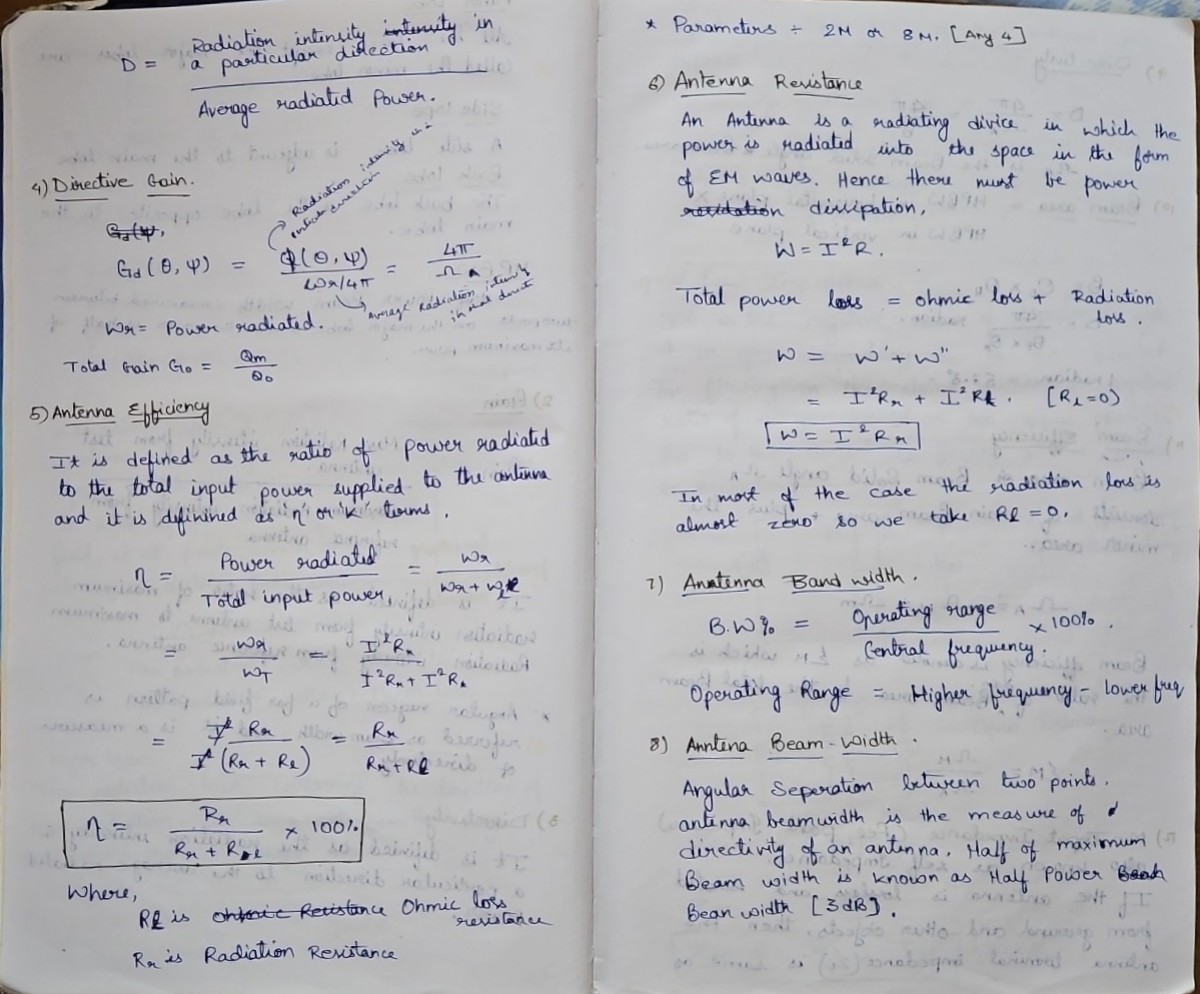 D = Radiation intensity intensity in
a particular direction
Average radiated Power.
4) Directive Gain.
Gd(ψ,
Radiation intensity
direction
Gd (θ, ψ) = ϕ(θ, ψ) / Wr/4π = 4π / Ω A
average radiation intensity
in
Wr = Power radiated.
Total Gain G0 = Qm / Q0
5) Antenna Efficiency
It is defined as the ratio of power radiated
to the total input power supplied to the antenna
and it is difinined as 'η' or 'K' terms.
η = Power radiated / Total input power = Wr / Wr + Wl
= Wr / WT = I²Rr / I²Rr + I²Rl
= I² Rr / I² (Rr + Rl) = Rr / Rr + Rl
η = Rr / Rr + Rl × 100%
Where,
Rl is ohmic Resistance Ohmic loss
resistance
Rr is Radiation Resistance
* Parameters ÷ 2M or 8M. [Any 4]
6) Antenna Resistance
An Antenna is a radiating divice in which the
power is radiated into the space in the form
of EM waves. Hence there must be power
dissipation,
W = I²R.
Total power loss = ohmic loss + Radiation
loss.
W = W' + W"
= I²Rr + I²Rl. [Rl=0)
W = I²Rr
In most of the case the radiation loss is
almost zero so we take Rl = 0.
7) Anntenna Band width.
B.W% = Operating range / Central frequency. × 100%.
Operating Range = Higher frequency - lower freq
8) Anntena Beam-Width.
Angular Seperation between two points.
antenna beamwidth is the measure of
directivity of an antenna. Half of maximum
Beam width is known as Half Power
Bean width [3dB].